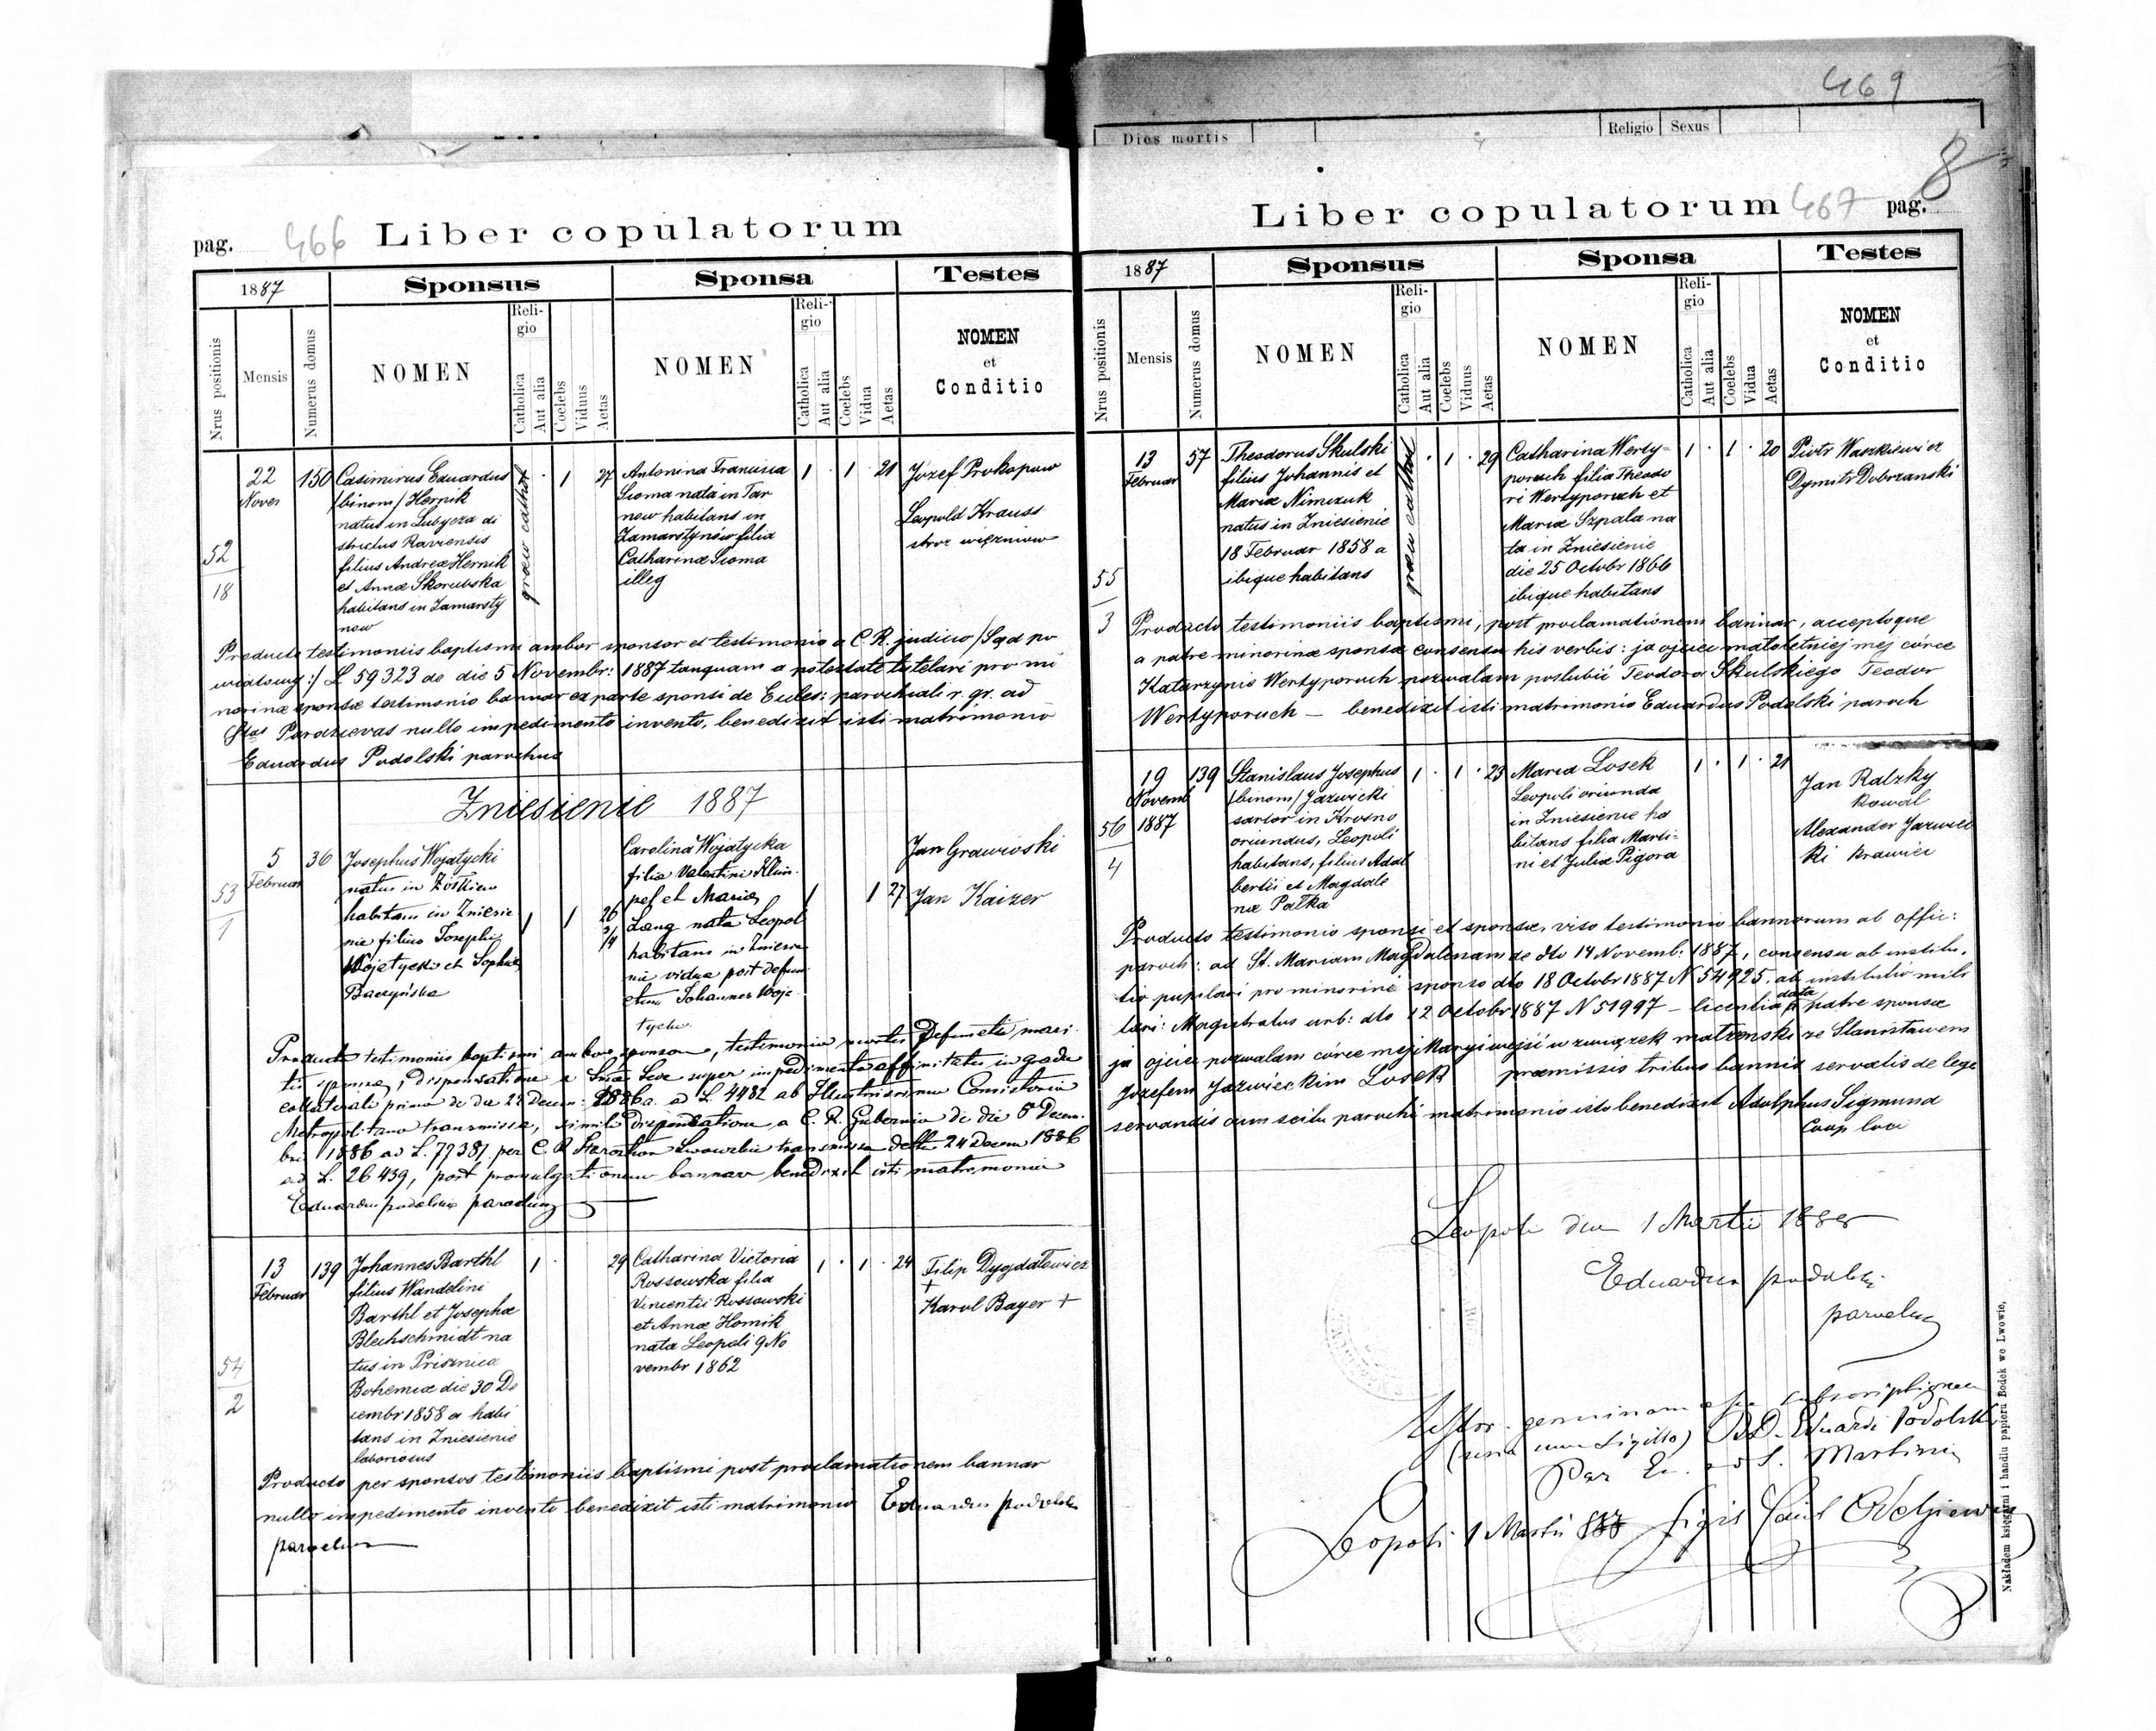 469
Dies mortis
Religio
Sexus
pag. 466 Liber copulatorum
1887
Sponsus
Sponsa
Testes
Nrus positionis
Mensis
Numerus domus
NOMEN
Reli-
gio
Catholica
Aut alia
Coelebs
Viduus
Aetas
NOMEN
Reli-
gio
Catholica
Aut alia
Coelebs
Vidua
Aetas
NOMEN
et
Conditio
52
18
22
Nover
150
Casimirus Eduardus
/binom/ Hernik
natus in Lubycza di
strictus Ravensis
filius Andreæ Hernik
et Annæ Skorubska
habitans in Zamarsty
now
graeco cathol
1
27
Antonina Francisca
Sioma nata in Tar
now habitans in
Zamarstynow filia
Catharinæ Sioma
illeg
1
1
21
Józef Prokopow
Leopold Krauss
stroz więzniow
Producto testimoniis baptismi ambor sponsor et testimonio a C. R. judicio /Sąd po
wiatowy :/ L 59323 de die 5 Novembr: 1887 tanquam a potestate tutelari pro mi
norinæ sponsæ testimonio bannor ex parte sponsi de Eccles: parochiali r. gr. ad
Stas Parascevas nullo impedimento invento, benedixit isti matrimonio
Eduardus Podolski parochus
Zniesienie 1887
53
1
5
Februar
36
Josephus Wojatycki
natus in Żółkiew
habitans in Zniesie
nie filius Josephi
Wojatycki et Sophiæ
Baczyńska
1
1
26
3/4
Carolina Wojatycka
filia Valentini Klim
pel et Mariæ
Lang nata Leopol
habitans in Zniesie
nie vidua post defun
ctum Johannes Woja
tycki
1
1
27
Jan Grawioski
Jan Kaizer
Producto testimoniis baptismi ambor sponsor, testimonio mortis defuncti mari
ti sponsæ, dispensatione a Sma Sede super impedimento affinitatis in gradu
collaterali primo de die 22 Decem: 1886 a. ad L 4482 ab Illustrissimo Consistorio
Metropolitano transmissa, simile dispensatione a C. R. Gubernio de die 5 Decem
bri 1886 ad L. 79381 per C. R. Starostwo Lwowskie transmissa ddto 24 Decem 1886
ad L. 26439, post promulgationem bannor benedixit isti matrimonio
Eduardus Podolski parochus
54
2
13
Februar
139
Johannes Barthl
filius Wandelini
Barthl et Josepha
Blechschmidt na
tus in Prisnica
Bohemiæ die 30 De
cembr 1858 a habi
tans in Zniesienie
laboriosus
1
29
Catharina Victoria
Rossowska filia
Vincentii Rossowski
et Annæ Homik
nata Leopoli 9 No
vembr 1862
1
1
24
Filip Dygdalewicz
+
Karol Bayer +
Producto per sponsos testimoniis baptismi post proclamationem bannor
nullo impedimento invento benedixit isti matrimonio Eduardus Podolski
parochus
8
Liber copulatorum 467 pag.
1887
Sponsus
Sponsa
Testes
Nrus positionis
Mensis
Numerus domus
NOMEN
Reli-
gio
Catholica
Aut alia
Coelebs
Viduus
Aetas
NOMEN
Reli-
gio
Catholica
Aut alia
Coelebs
Vidua
Aetas
NOMEN
et
Conditio
55
3
13
Februar
57
Theodorus Skulski
filius Johannis et
Mariæ Nimczuk
natus in Zniesienie
18 Februar 1858 a
ibique habitans
graeco cathol
1
29
Catharina Werty-
poroch filia Theodo
ri Wertyporoch et
Mariæ Szpala na
ta in Zniesienie
die 25 Octobr 1866
ibique habitans
1
1
20
Piotr Waszkiewicz
Dymitr Dobrzanski
Producto testimoniis baptismi, post proclamationem bannor, acceptoque
a patre minorinæ sponsæ consensu his verbis: ja ojciec małoletniej mej córce
Katarzynie Wertyporoch pozwalam poslubić Teodora Skulskiego Teodor
Wertyporuch — benedixit isti matrimonio Eduardus Podolski paroch
56
4
19
Novemb
1887
139
Stanislaus Josephus
/binom/ Jazwicki
sartor in Krosno
oriundus, Leopoli
habitans, filius Adal
berti et Magdale
næ Pałka
1
1
23
Maria Losek
Leopoli oriunda
in Zniesienie ha
bitans filia Marti-
ni et Julia Pigora
1
1
21
Jan Ratzky
kowal
Alexander Jazwiec
ki krawiec
Producto testimonio sponsi et sponsæ, viso testimonio bannorum ab offic:
paroch: ad St. Mariam Magdalenam de dto 14 Novemb: 1887, consensu ab institu-
tio pupilari pro minorine sponso dto 18 Octobr 1887 N 54925, ab institutio mili
tari: Magistratus urb: dto 12 Octobr 1887 N 51997 – licentia data a patre sponsæ
ja ojciec pozwalam córce mej Maryi wejść w związek małzenski ze Stanisławem
Jozefem Jazwieckim Losek præmissis tribus bannis servatis de lege
servandis cum scitu parochi matrimonio isto benedixit Adolphus Sigmund
Coop loci
Leopoli die 1 Martii 1888
Eduardus Podolski
parochus
Testor genuinam esse subscriptionem
(una cum sigillo) RD. Eduardi Podolski
Par Ec. ad S. Martinum
Leopoli 1 Martii 888
Nakładem księgarni i handlu papieru Bodek we Lwowie,